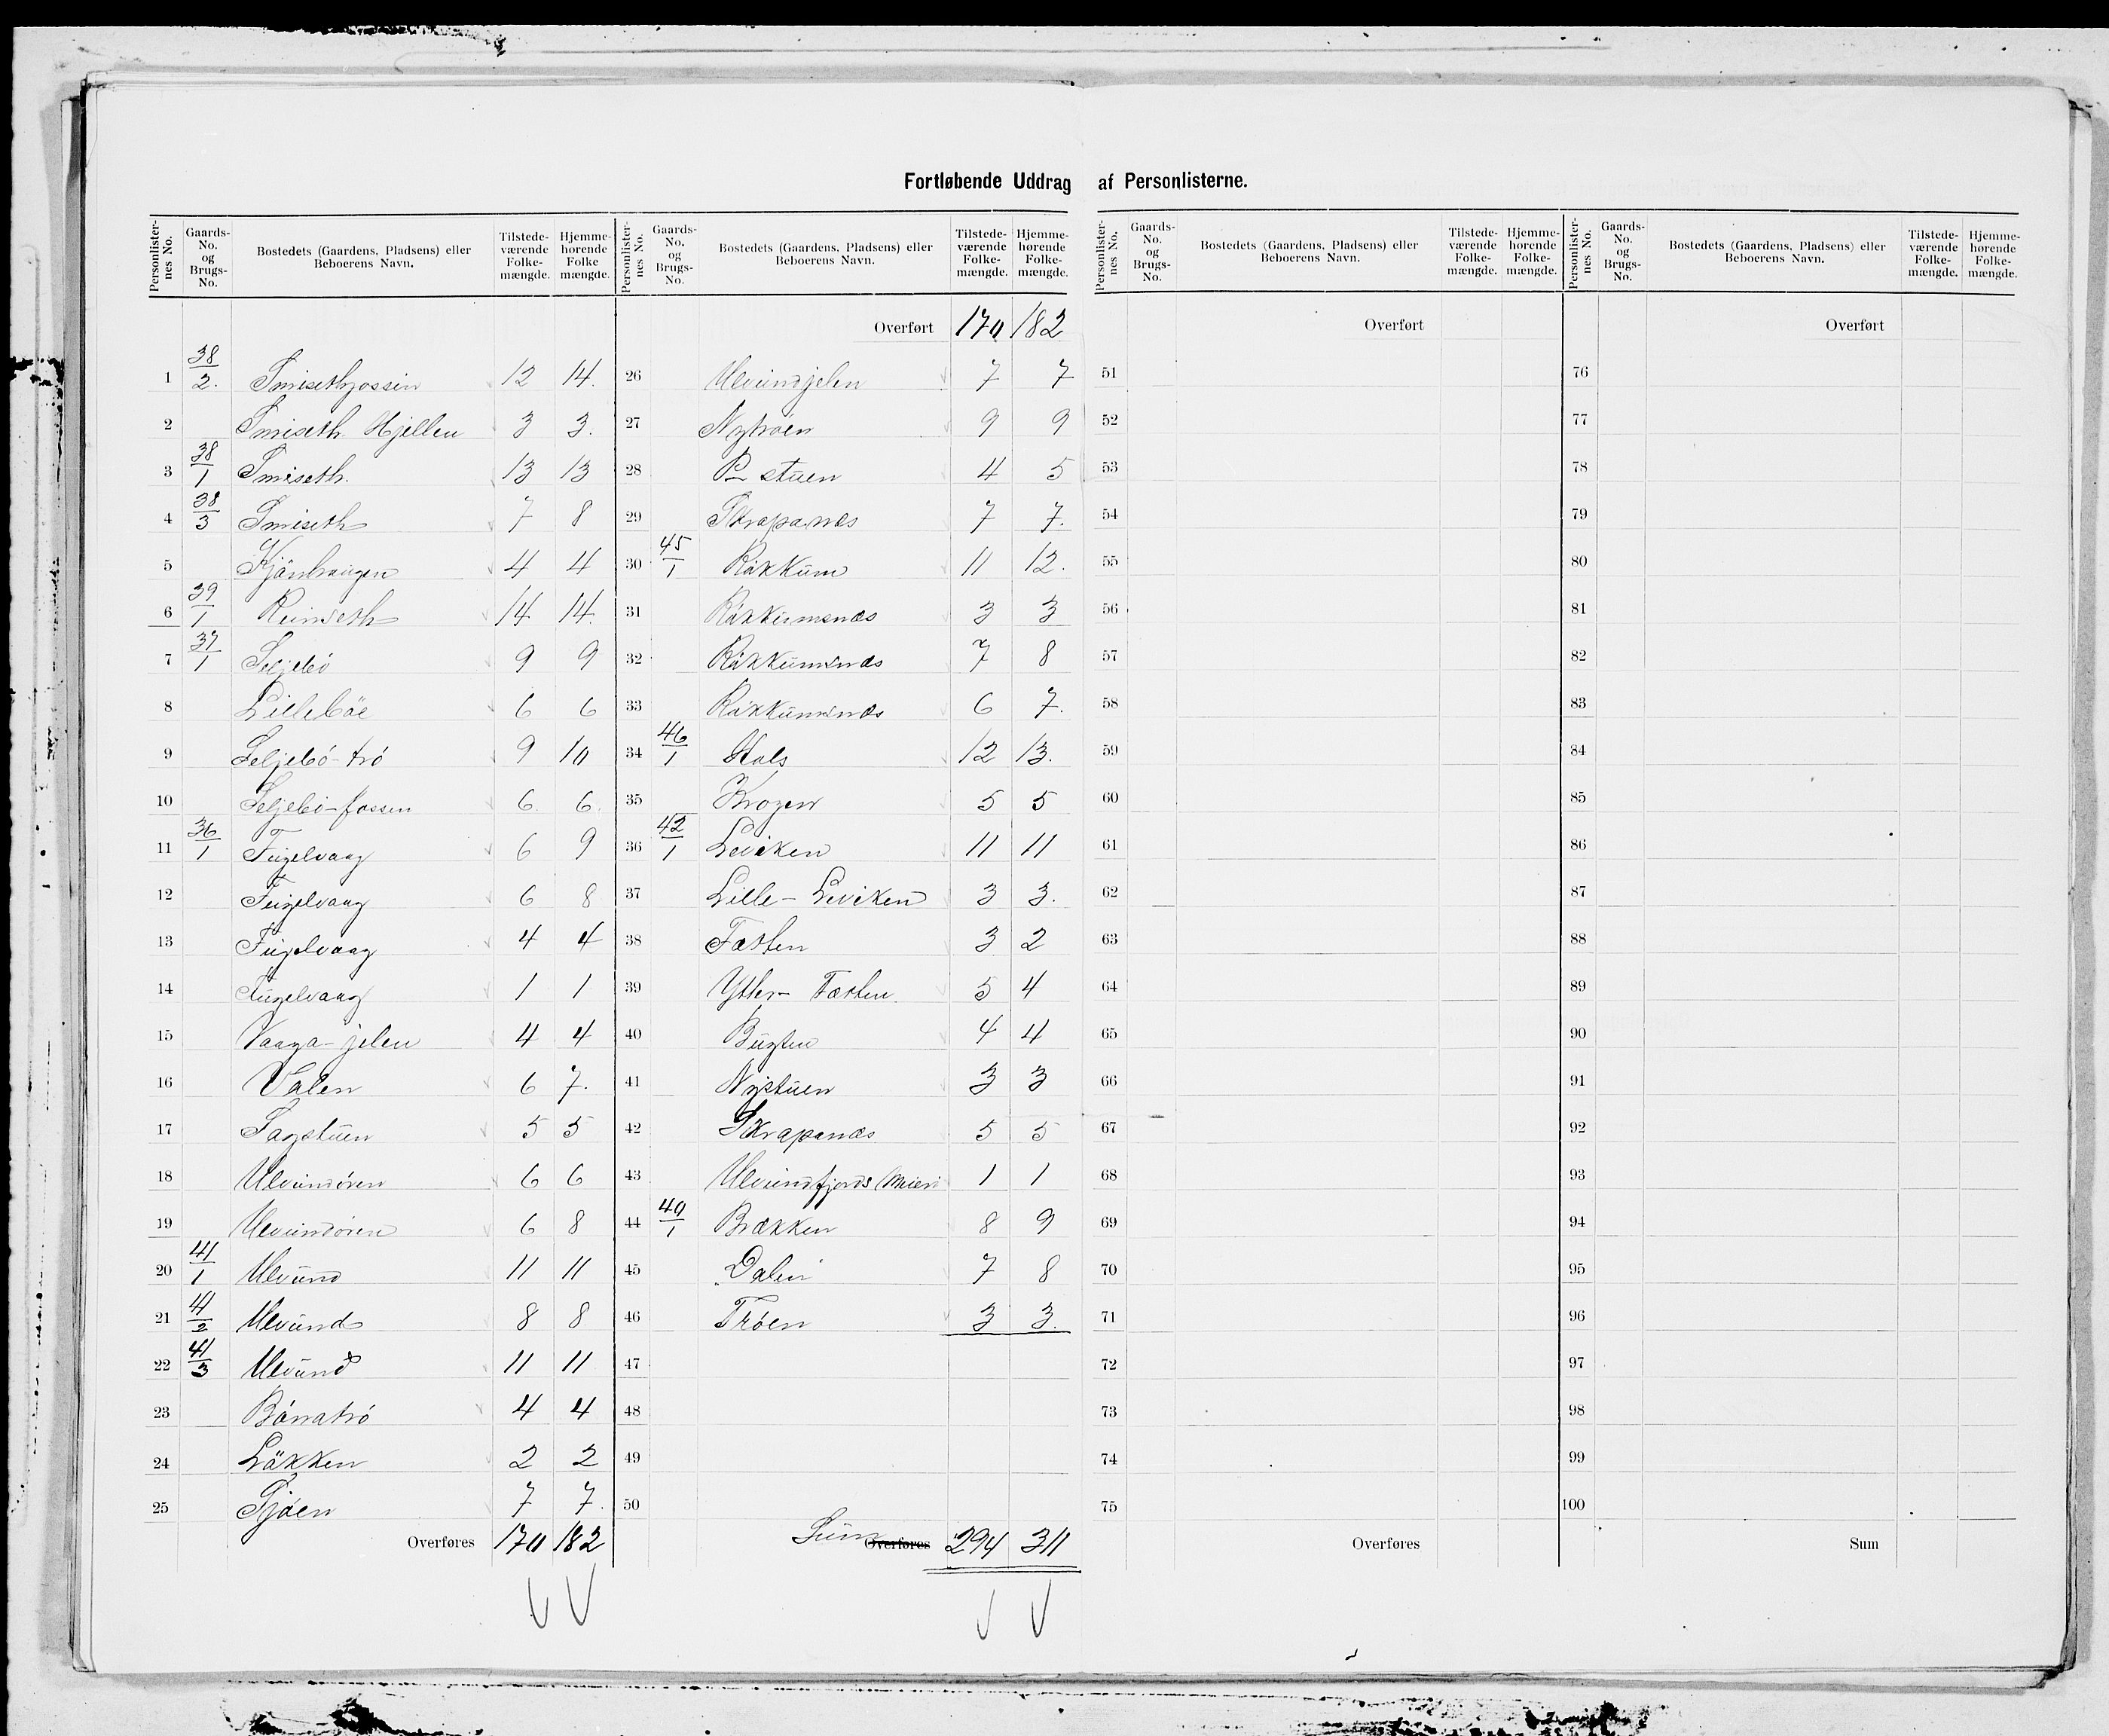 Fortløbende Uddrag af Personlisterne.
Personlister-nes No. Gaards-No. og Brugs-No. Bostedets (Gaardens, Pladsens) eller Beboerens Navn. Tilstede-værende Folke-mængde. Hjemme-hørende Folke mængde.
1 38/2. 12 14.
2 Smiseth Hjellen 3 3.
3 38/1 Smiseth. 13 13
4 38/3 Smiseth 7 8
5 4 4
6 39/1 14 14.
7 37/1 Seljebö 9 9
8 Lillebøe 6 6
9 Seljebö-trö 9 10
10 Seljebö-fossen 6. 6.
11 36/1 Fugelvaag 6 9
12 Fugelvaag 6 8
13 Fugelvaag 4 4
14 Fugelvaag 1 1
15 Vaaga-jelen 4 4
16 Valen 6 7.
17 Sagstuen 5 5
18 Ulvundören 6 6
19 Ulvundören 6 8
20 41/1 Ulvund 11 11
21 41/2 Ulvund 8 8
22 41/3 Ulvund 11 11
23 4 4
24 Läkken 2 2
25 Sjøen 7 7.
Overføres 170 182
Personlister-nes No. Gaards-No. og Brugs-No. Bostedets (Gaardens, Pladsens) eller Beboerens Navn. Tilstede-værende Folke-mængde. Hjemme-hørende Folke-mængde.
Overført 170 182
26 Ulvundjelen 7 7
27 Nytrøen 9 9
28 stuen 4 5
29 Skrapanæs 7 7.
30 45/1 Räkkum 11 12.
31 Räkkumsnæs 3 3
32 Räkkumsnæs 7 8
33 Räkkumsnæs 6 7.
34 46/1 Hals 12 13.
35 Krogen 5 5
36 42/1 Leviken 11 11
37 Lille-Leviken 3 3.
38 Fæsten 3 2
39 Ytter-Fæsten. 5 4
40 Bugten 4 4
41 Nystuen 3 3
42 Skrapanæs 5 5
43 Ulvundfjords Meieri 1 1
44 40/1 Brækken 8 9
45 Dalen 7 8
46 Trøen 3 3.
47
48
49
50
Sum Overføres 294 311
Personlister-nes No. Gaards-No. og Brugs-No. Bostedets (Gaardens, Pladsens) eller Beboerens Navn. Tilstede-værende Folke-mængde. Hjemme-hørende Folke-mængde.
Overført
51
52
53
54
55
56
57
58
59
60
61
62
63
64
65
66
67
68
69
70
71
72
73
74
75
Overføres
Personlister-nes No. Gaards-No. og Brugs-No. Bostedets (Gaardens, Pladsens) eller Beboerens Navn. Tilstede-værende Folke-mængde. Hjemme-hørende Folke-mængde.
Overført
76
77
78
79
80
81
82
83
84
85
86
87
88
89
90
91
92
93
94
95
96
97
98
99
100
Sum